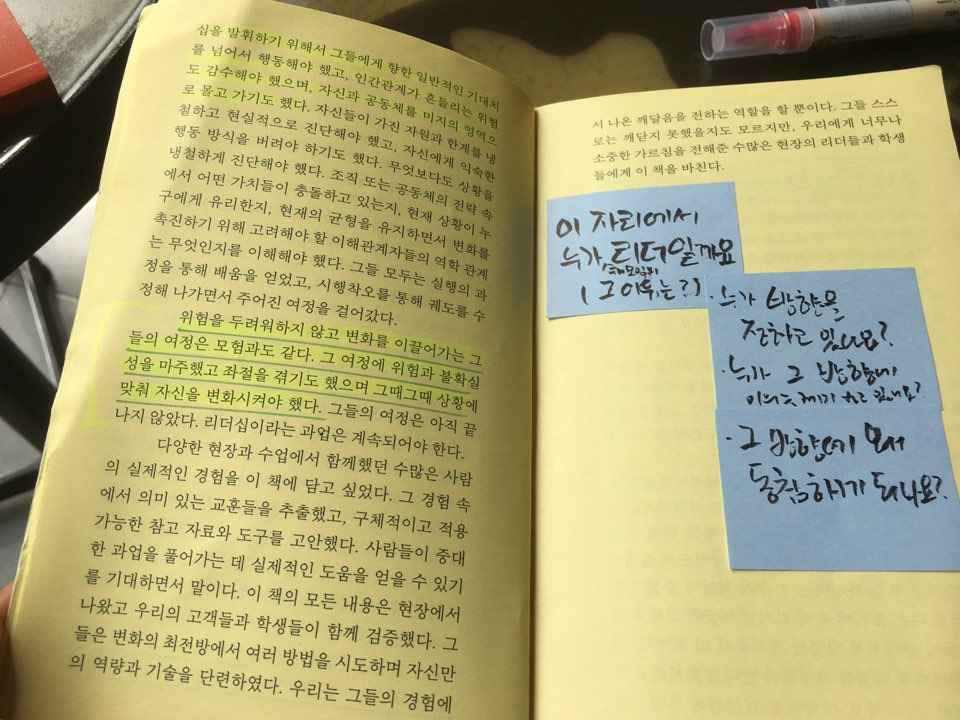 십을 발휘하기 위해서 그들에게 향한 일반적인 기대치
를 넘어서 행동해야 했고, 인간관계가 흔들리는 위험
도 감수해야 했으며, 자신과 공동체를 미지의 영역으
로 몰고 가기도 했다. 자신들이 가진 자원과 한계를 냉
철하고 현실적으로 진단해야 했고, 자신에게 익숙한
행동 방식을 버려야 하기도 했다. 무엇보다도 상황을
냉철하게 진단해야 했다. 조직 또는 공동체의 전략 속
에서 어떤 가치들이 충돌하고 있는지, 현재 상황이 누
구에게 유리한지, 현재의 균형을 유지하면서 변화를
촉진하기 위해 고려해야 할 이해관계자들의 역학 관계
는 무엇인지를 이해해야 했다. 그들 모두는 실행의 과
정을 통해 배움을 얻었고, 시행착오를 통해 궤도를 수
정해 나가면서 주어진 여정을 걸어갔다.
위험을 두려워하지 않고 변화를 이끌어가는 그
들의 여정은 모험과도 같다. 그 여정에 위험과 불확실
성을 마주했고 좌절을 겪기도 했으며 그때그때 상황에
맞춰 자신을 변화시켜야 했다. 그들의 여정은 아직 끝
나지 않았다. 리더십이라는 과업은 계속되어야 한다.
다양한 현장과 수업에서 함께했던 수많은 사람
의 실제적인 경험을 이 책에 담고 싶었다. 그 경험 속
에서 의미 있는 교훈들을 추출했고, 구체적이고 적용
가능한 참고 자료와 도구를 고안했다. 사람들이 중대
한 과업을 풀어가는 데 실제적인 도움을 얻을 수 있기
를 기대하면서 말이다. 이 책의 모든 내용은 현장에서
나왔고 우리의 고객들과 학생들이 함께 검증했다. 그
들은 변화의 최전방에서 여러 방법을 시도하며 자신만
의 역량과 기술을 단련하였다. 우리는 그들의 경험에
서 나온 깨달음을 전하는 역할을 할 뿐이다. 그들 스스
로는 깨닫지 못했을지도 모르지만, 우리에게 너무나
소중한 가르침을 전해준 수많은 현장의 리더들과 학생
들에게 이 책을 바친다.
이 자리에서
누가 리더일까요
( 그 이유는?)
· 누가 방향을
전하고 있나요?
· 누가 그 방향에
이의를 제기 하고 있나요?
· 그 방향에 모두
동참하기 되나요?